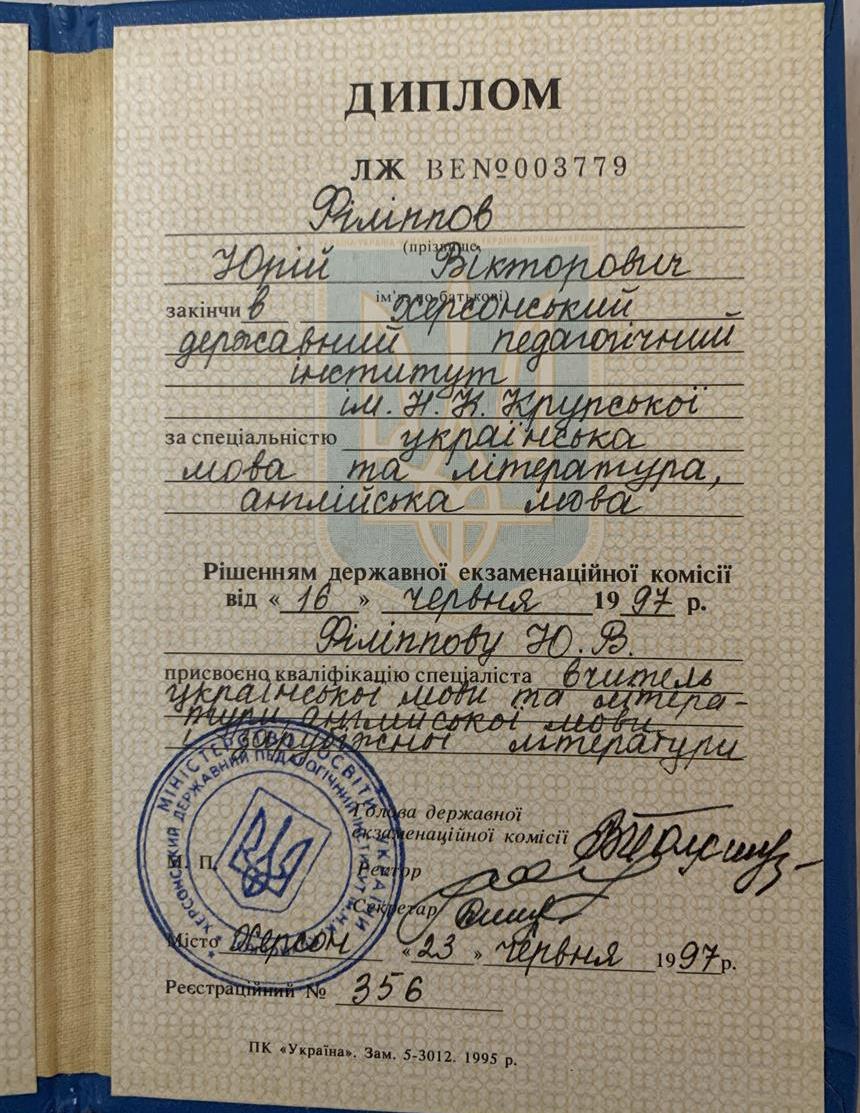 ДИПЛОМ
ЛЖ ВЕ№003779
Філіппов
(прізвище,
Юрій Вікторович
ім'я, по батькові)
закінчив Херсонський
державний педагогічний
інститут
ім. Н. К. Крупської
за спеціальністю українська
мова та література,
англійська мова
Рішенням державної екзаменаційної комісії
від « 16 » червня 1997 р.
Філіппову Ю. В.
присвоєно кваліфікацію спеціаліста вчитель
української мови та літера-
тури, англійської мови
і зарубіжної літератури
МІНІСТЕРСТВО ОСВІТИ УКРАЇНИ
ХЕРСОНСЬКИЙ ДЕРЖАВНИЙ ПЕДАГОГІЧНИЙ ІНСТИТУТ ІМ. Н.К.
Голова державної
екзаменаційної комісії
М. П.
Ректор
Секретар
Місто Херсон « 23 » червня 1997 р.
Реєстраційний № 356
ПК «Україна». Зам. 5-3012. 1995 р.